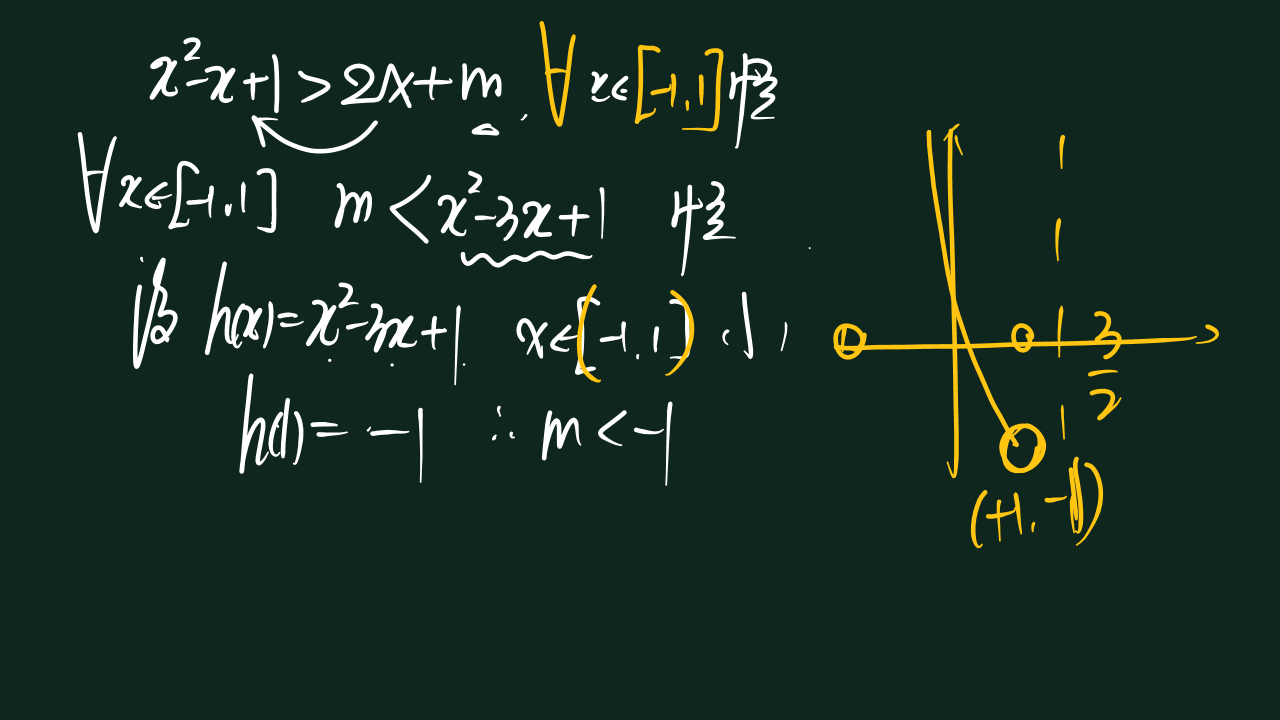 x²-x+1>2x+m. ∀x∈[-1,1]恒
∀x∈[-1,1] m<x²-3x+1 恒
h(x)=x²-3x+1. x∈(-1,1)
h(1)=-1 ∴m<-1
3
2
(+1,-1)